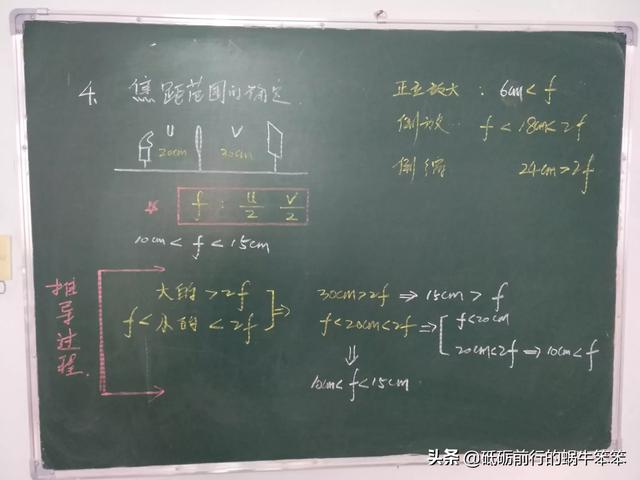 4、焦距范围的确定
U V
20cm 30cm
f : U/2 V/2
10cm < f < 15cm
正立放大 : 6cm < f
倒放 f < 18cm < 2f
倒缩 24cm > 2f
推导过程
大的 > 2f
f < 小的 < 2f
⇒
30cm > 2f ⇒ 15cm > f
f < 20cm < 2f ⇒ f < 20cm
20cm < 2f ⇒ 10cm < f
⇓
10cm < f < 15cm
头条 @砥砺前行的蜗牛笨笨